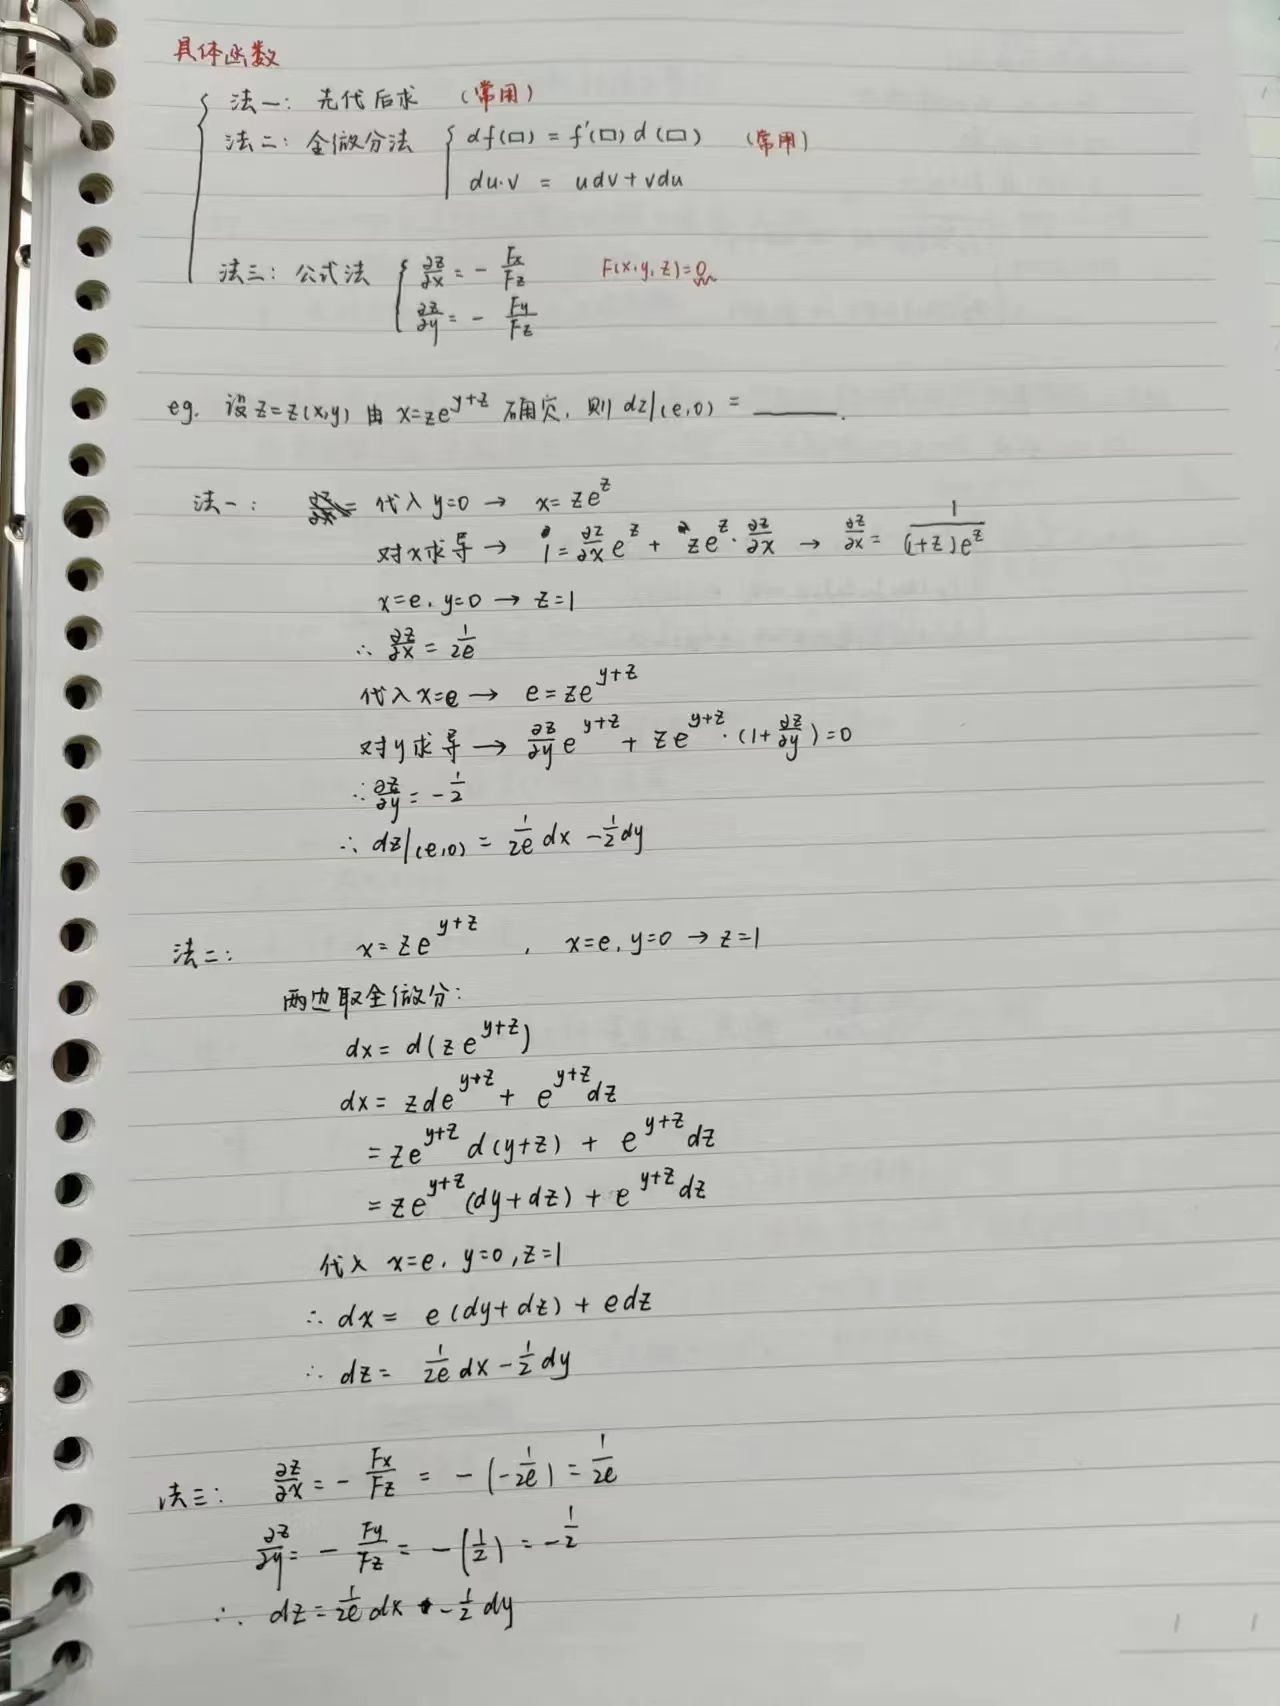 具体函数
法一：先代后求 （常用）
法二：全微分法 { df(□) = f'(□) d(□) （常用）
du·v = udv + vdu
法三：公式法 { ∂z/∂x = - Fx/Fz F(x,y,z)=0
∂z/∂y = - Fy/Fz
eg. 设 z=z(x,y) 由 x=ze^{y+z} 确定，则 dz|(e,0) = ______.
法一： 代入 y=0 → x=ze^z
对x求导 → 1 = ∂z/∂x e^z + ze^z · ∂z/∂x → ∂z/∂x = 1/((1+z)e^z)
x=e, y=0 → z=1
∴ ∂z/∂x = 1/2e
代入 x=e → e=ze^{y+z}
对y求导 → ∂z/∂y e^{y+z} + ze^{y+z}·(1+∂z/∂y)=0
∴ ∂z/∂y = -1/2
∴ dz|(e,0) = 1/2e dx - 1/2 dy
法二： x=ze^{y+z} , x=e, y=0 → z=1
两边取全微分：
dx = d(ze^{y+z})
dx = zde^{y+z} + e^{y+z}dz
= ze^{y+z} d(y+z) + e^{y+z}dz
= ze^{y+z}(dy+dz) + e^{y+z}dz
代入 x=e, y=0, z=1
∴ dx = e(dy+dz) + edz
∴ dz = 1/2e dx - 1/2 dy
法三： ∂z/∂x = - Fx/Fz = -(-1/2e) = 1/2e
∂z/∂y = - Fy/Fz = -(1/2) = -1/2
∴ dz = 1/2e dx - 1/2 dy